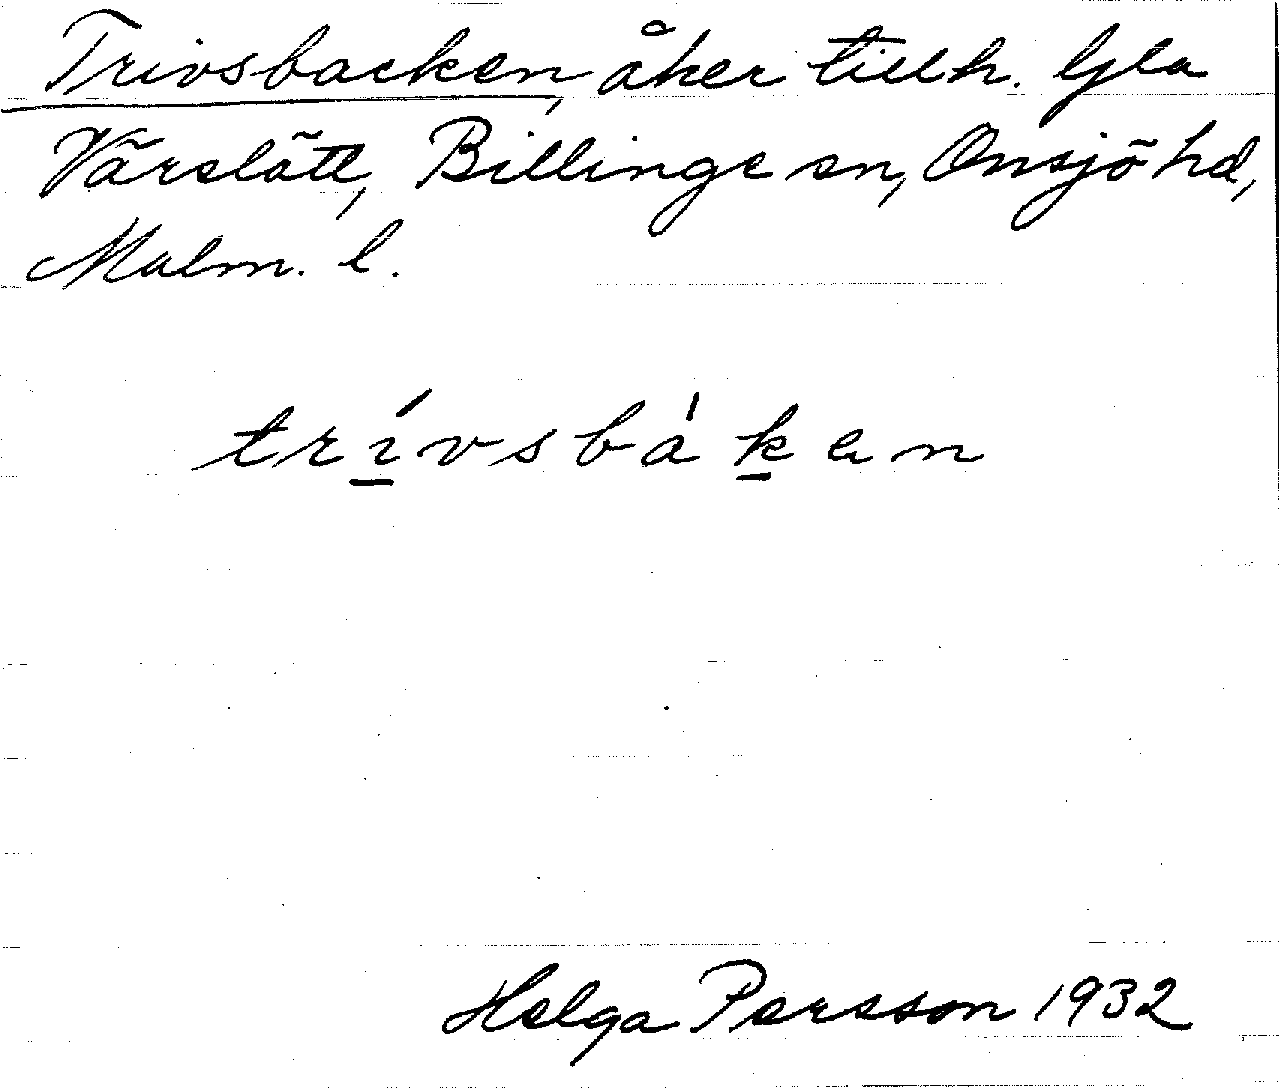 Trivsbacken, åker tillh. Gla
Värslätt, Billinge sn, Onsjö hd,
Malm. l.
trívsbàken
Helga Persson 1932